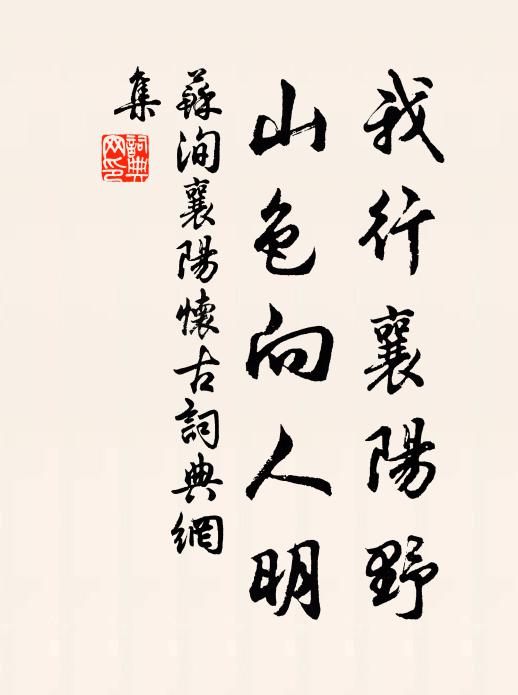 我行襄陽野
山色向人明
蘇洵襄陽懷古詞典網
集
詞典網印